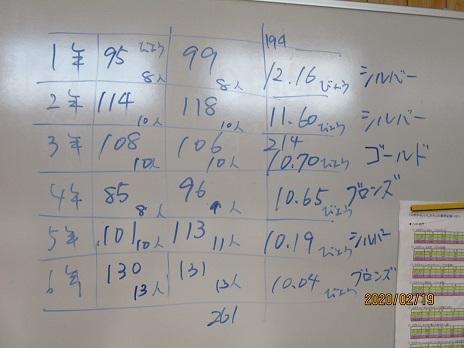 194
1年 95びょう 8人 99 8人 12.16びょう シルバー
2年 114 10人 118 10人 11.60びょう シルバー
3年 108 10人 106 10人 214 10.70びょう ゴールド
4年 85 8人 96 人 10.65びょう ブロンズ
5年 101 10人 113 11人 10.19びょう シルバー
6年 130 13人 131 13人 10.04びょう ブロンズ
261
2020/02/19